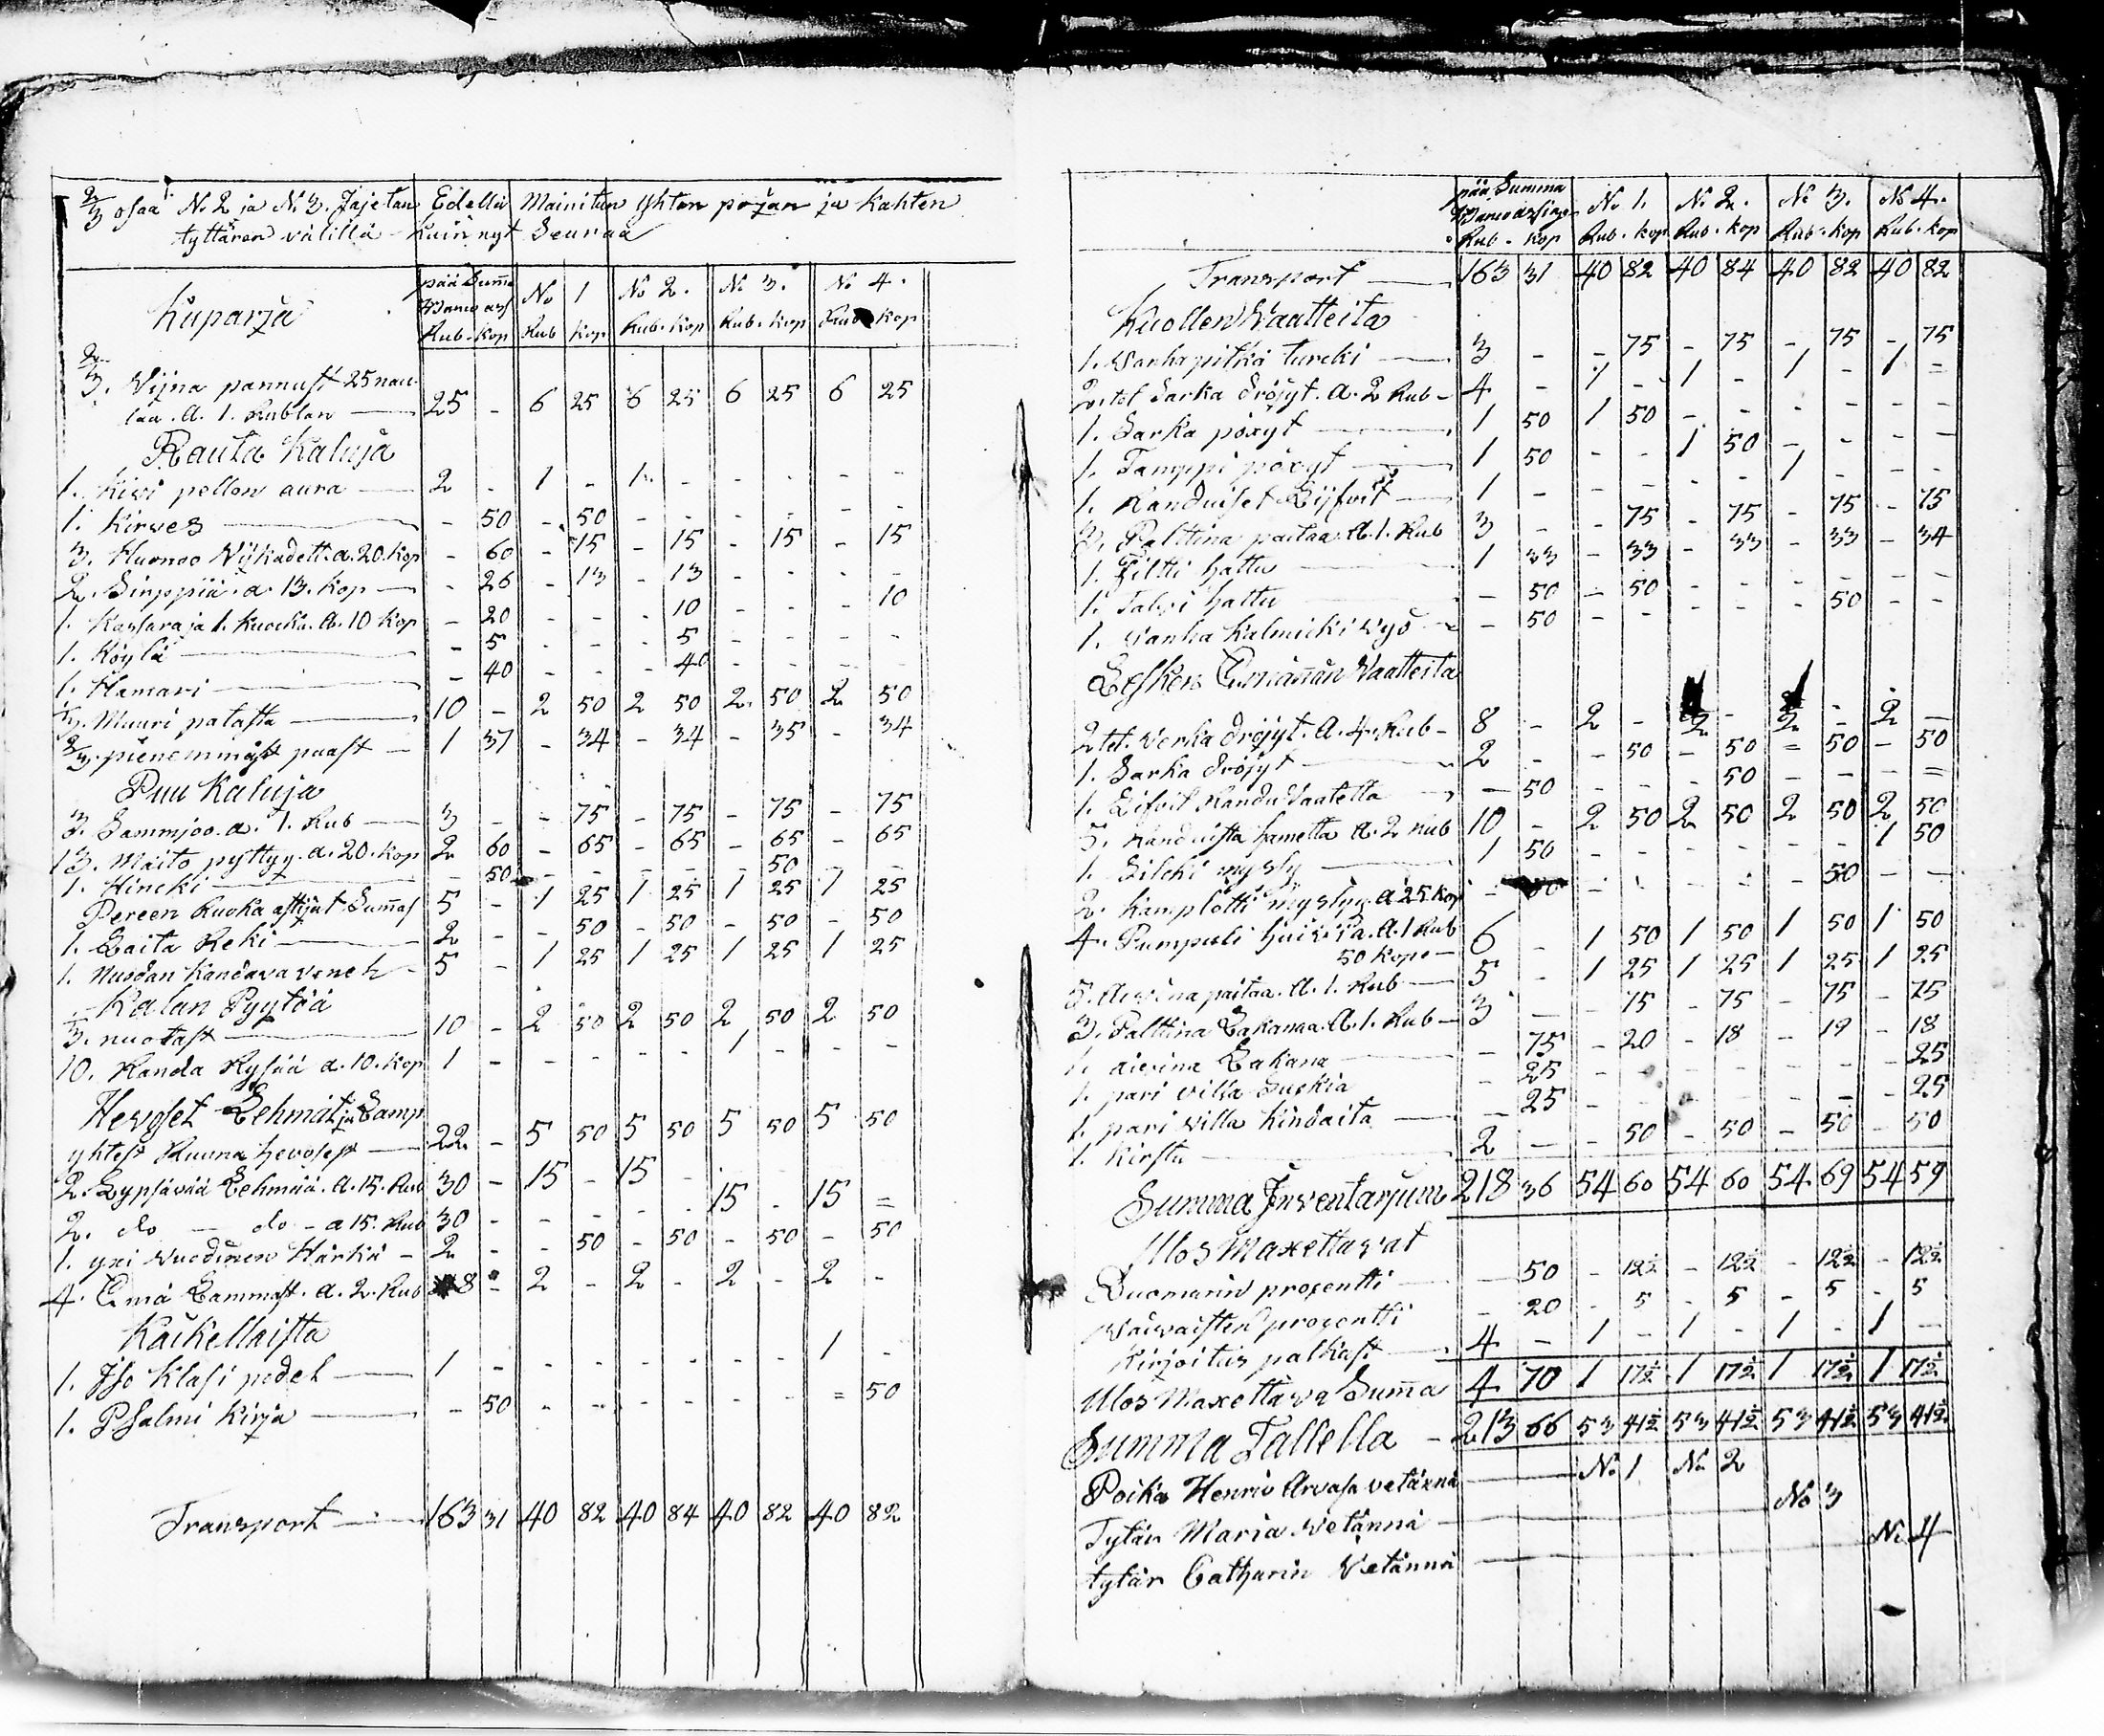 2/3 osaa No 2 ja No 3. Jajetan Edellä Mainitun Yhten pojan ja kahten
tyttären välillä - kuin nyt Seuraa
Kuparja pää Summ No 1 No 2. No 3. No 4.
Rub. kop Rub kop Rub. kop Rub. kop Rub kop
2/3. Wijna pannust 25 nau-
laa. A. 1. Rublan — 25 - 6 25 6 25 6 25 6 25
Rauta Kaluja
1. Kivi pellon aura — 2 - 1 - 1 - - - - -
1. Kirves — - 50 - 50 - - - - - -
3. Huonoo Vijkadett. a. 20. kop - 60 - 15 - 15 - 15 - 15
2. Sirppiä. a. 13. kop — - 26 - 13 - 13 - - - -
1. Kassara ja 1. kuocka. A. 10 kop - 20 - - - 10 - - - 10
1. Köylä — - 5 - - - 5 - - - -
1. Hamari — - 40 - - - 40 - - - -
Muuri patasta — 10 - 2 50 2 50 2. 50 2 50
2/3. pienemmäst paast — 1 37 - 34 - 34 - 35 - 34
Puu Kaluja
3. Sammjoo. a. 1. Rub — 3 - - 75 - 75 - 75 - 75
13. Maito pyttyy. a. 20. kop 2 60 - 65 - 65 - 65 - 65
1. Hincki — - 50 - - - - - 50 - -
Pereen Ruoka astijat Sumas 5 - 1 25 1 25 1 25 1 25
1. Laita Reki — 2 - - 50 - 50 - 50 - 50
1. Nuodan Kandava veneh - 5 - 1 25 1 25 1 25 1 25
Kalan Pyytöä
nuotast — 10 - 2 50 2 50 2 50 2 50
10. Randa Rysää a. 10. kop 1 - - - - - 1 - - -
Hevoset Lehmät ja Lamp
yhtest Ruuna hevosest — 22 - 5 50 5 50 5 50 5 50
2. Lypsävää Lehmää. A. 15. Rub 30 - 15 - 15 -
2. do — do - a 15. Rub 30 - - - - - 15 - 15 =
1. yxi vuodinen Härkä - 2 - - 50 - 50 - 50 - 50
4. Emä Lammast. a. 2. Rub 8 - 2 - 2 - 2 - 2 -
Kaikellaista
1. Iso klasi podel — 1 - - - - - - - 1 -
1. Psalmi Kirja — - 50 - - - - - - = 50
Transport — 163 31 40 82 40 84 40 82 40 82
pää Summa No 1. No 2. No 3. No 4.
Rub. kop Rub. kop Rub. kop Rub. kop Rub. kop
Transport — 163 31 40 82 40 84 40 82 40 82
Kuollen Waatteita
1. Vanha pitkä turcki — 3 - - 75 - 75 - 75 - 75
2. tet Sarka Sröjyt. A. 2 Rub - 4 - 1 - 1 - 1 - 1 =
1. Sarka pöxyt — 1 50 1 50 - - - - - -
1. Tamppi pöxyt — 1 50 - - 1 50 - - - -
1. Randuiset Lijfvit — 1 - - - - - 1 - - -
3. Palttina paitaa. A. 1. Rub 3 - - 75 - 75 - 75 - 75
1. Filtti hattu — 1 33 - 33 - 33 - 33 - 34
1. Talvi hattu — - 50 - 50 - - - - - -
1. Vanha Kalmicki vyö - - 50 - - - - - 50 - -
Lesken Emännän Waatteita
2 tet. Verka Sröjyt. A. 4. Rub - 8 - 2 - 2 - 2 - 2 -
1. Sarka Sröjyt — 2 - - 50 - 50 = 50 - 50
1. Lifvit Randu Vaatetta - 50 - - - 50 - - - =
5. Randuista hametta A. 2 Rub 10 - 2 50 2 50 2 50 2 50
1. Silcki myssy — 1 50 - - - - - - 1 50
2. Kamplotti myssyy a 25 kop - 50 - - - - - 50 - -
4. Pumpuli huivia. A. 1 Rub
50 kope — 6 - 1 50 1 50 1 50 1 50
5. Aivina paitaa. A. 1. Rub — 5 - 1 25 1 25 1 25 1 25
3. Palttina Lakana. A. 1. Rub - 3 - - 75 - 75 - 75 - 75
1. aivina Lakana — - 75 - 20 - 18 - 19 - 18
1. pari villa Suckia - 25 - - - - - - - 25
1. pari villa Kindaita — - 25 - - - - - - - 25
1. Kirstu — 2 - - 50 - 50 - 50 - 50
Summa Inventarjum 218 36 54 60 54 60 54 69 54 59
Ulos Maxettavat
Duomarin prosentti — - 50 - 12½ - 12½ - 12½ - 12½
Vaivaisten prosentti - 20 - 5 - 5 - 5 - 5
Kirjoitus palkast — 4 - 1 - 1 - 1 - 1 -
Ulos Maxettava Summa 4 70 1 17½ 1 17½ 1 17½ 1 17½
Summa Tallella - 213 66 53 41½ 53 41½ 53 41½ 53 41½
Poika Henric Arvasa vetännä — No 1 No 2
Tytär Maria Vetännä — No 3
tytär Catharin Vetännä — No 4